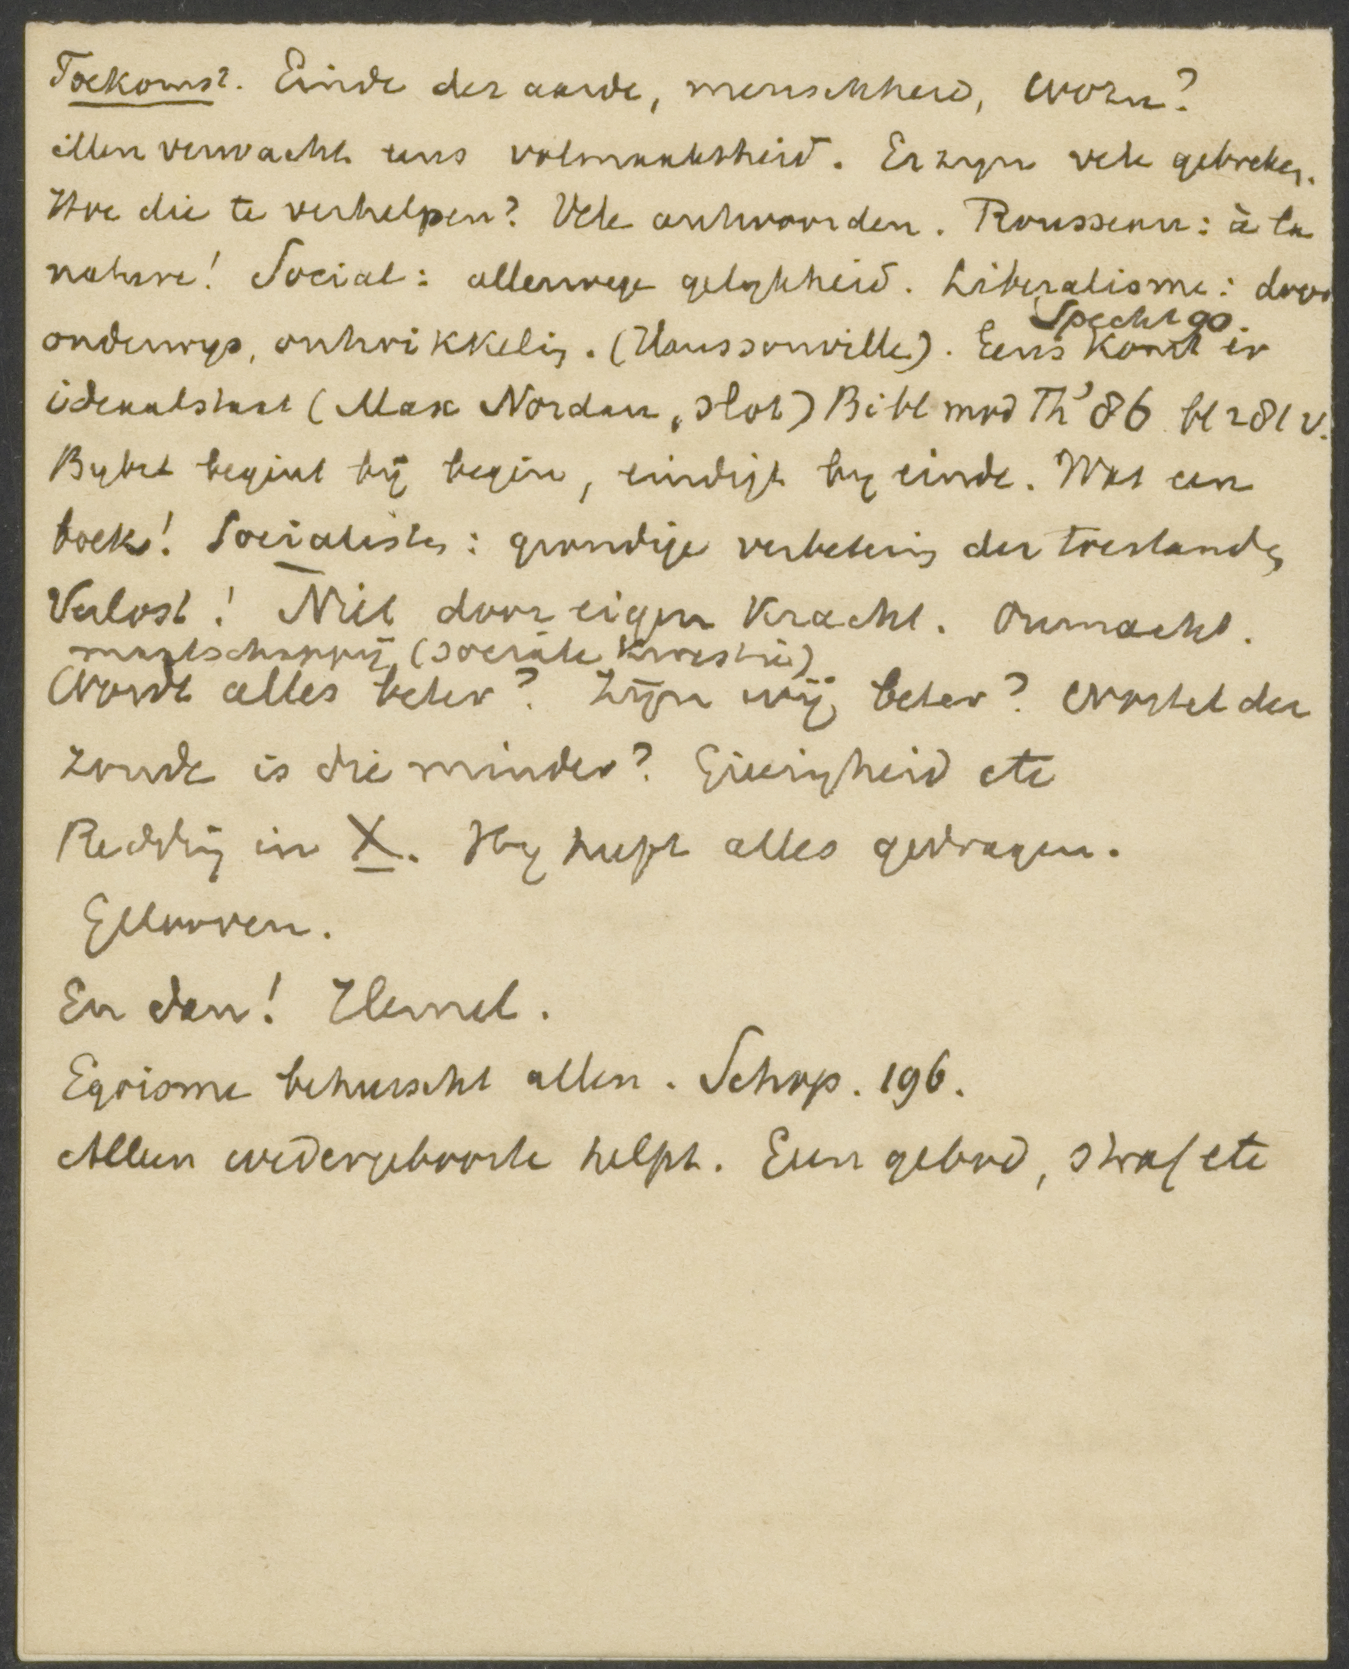 Toekomst. Einde der aarde, menschheid, wozu?
Allen verwacht eens volmaaktheid. Er zyn vele gebreken.
Hoe die te verhelpen? Vele antwoorden. Rousseau: à la
nature! Social: allerwege gelykheid. Liberalisme: door
Specht 90.
onderwys, ontwikkeling. (Haussonville). Eens komt er
ideaalstaat (Max Nordau, slot) Bibl mod Th' 86 bl 281 v.
Bybel begint bij begin, eindigt by einde. Wat een
boek! Socialisten: grondige verbetering der toestanden
Verlost! Niet door eigen kracht. Onmacht.
maatschappij (sociale kwestie)
Wordt alles beter? Zijn wij beter? Wortel der
zonde is die minder? Gierigheid etc
Redding in X. Hy heeft alles gedragen.
Gelooven.
En dan! Hemel.
Egoisme beheerscht allen. Schop. 196.
Alleen wedergeboorte helpt. Geen gebod, straf etc